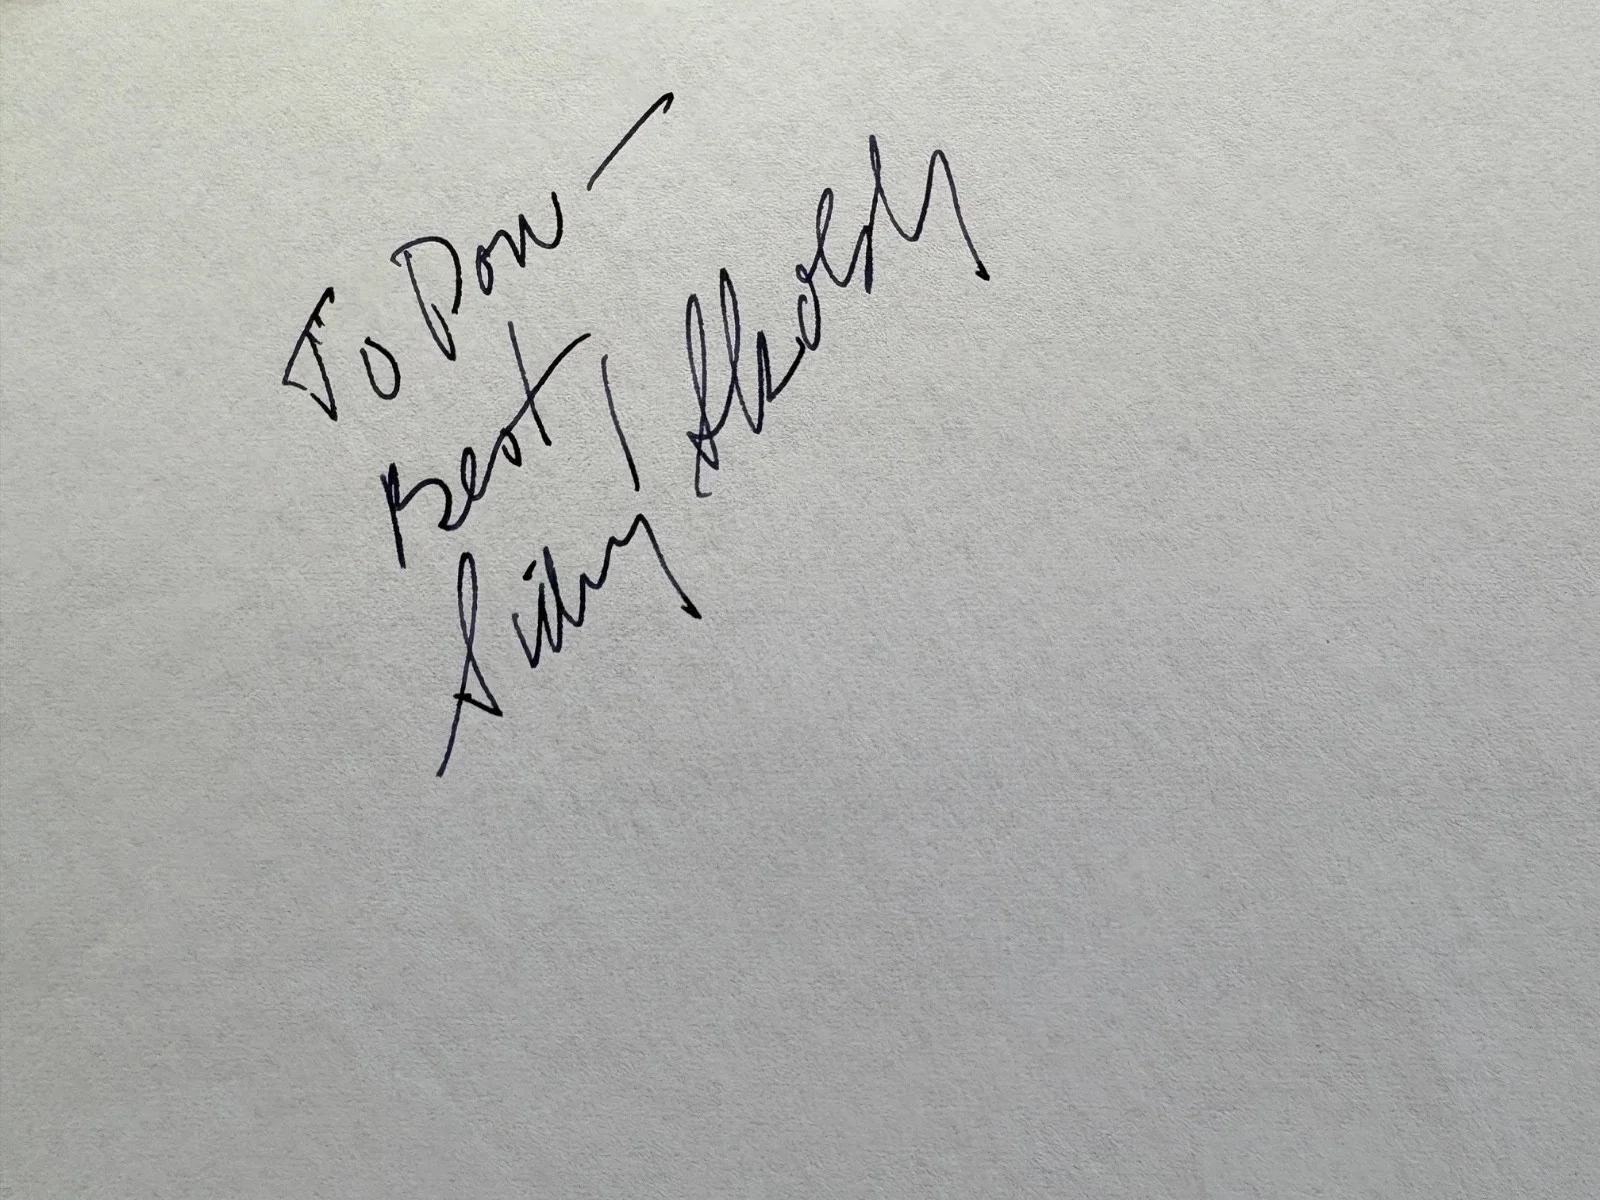 To Don —
Best,
Sidney Sheldon